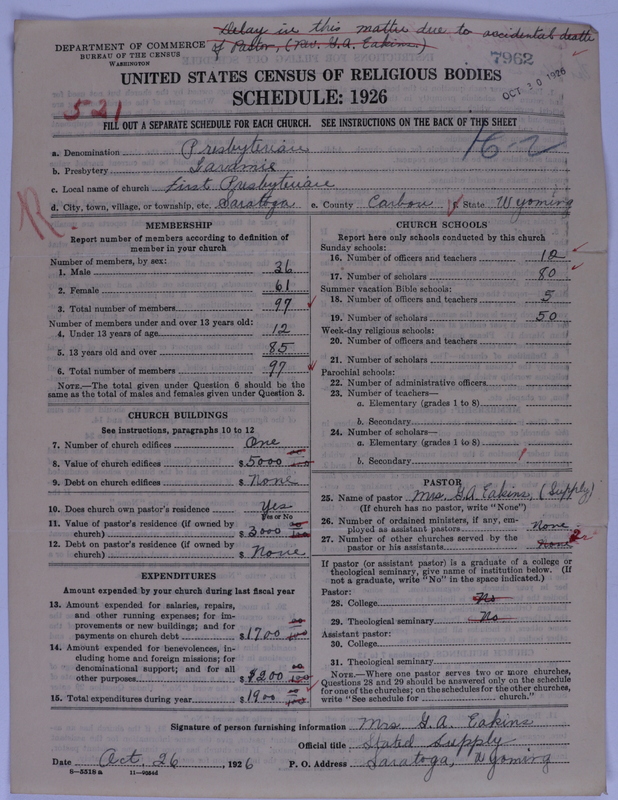 Delay in this matter due to accidental death
of Pastor, (Rev. G.A. Eakins.)
DEPARTMENT OF COMMERCE
BUREAU OF THE CENSUS
WASHINGTON
7962
OCT 30 1926
UNITED STATES CENSUS OF RELIGIOUS BODIES
SCHEDULE: 1926
521
FILL OUT A SEPARATE SCHEDULE FOR EACH CHURCH. SEE INSTRUCTIONS ON THE BACK OF THIS SHEET
16-2
a. Denomination Presbyterian
b. Presbytery Laramie
c. Local name of church First Presbyterian
d. City, town, village, or township, etc. Saratoga e. County Carbon f. State Wyoming
R.
MEMBERSHIP
Report number of members according to definition of
member in your church
Number of members, by sex:
1. Male 36
2. Female 61
3. Total number of members 97
Number of members under and over 13 years old:
4. Under 13 years of age 12
5. 13 years old and over 85
6. Total number of members 97
NOTE.—The total given under Question 6 should be the
same as the total of males and females given under Question 3.
CHURCH BUILDINGS
See instructions, paragraphs 10 to 12
7. Number of church edifices One
8. Value of church edifices $ 5000 00/100
9. Debt on church edifices $ None
10. Does church own pastor's residence Yes
Yes or No
11. Value of pastor's residence (if owned by
church) $ 3000 00/100
12. Debt on pastor's residence (if owned by
church) $ None
EXPENDITURES
Amount expended by your church during last fiscal year
13. Amount expended for salaries, repairs,
and other running expenses; for im-
provements or new buildings; and for
payments on church debt $ 1700 00/100
14. Amount expended for benevolences, in-
cluding home and foreign missions; for
denominational support; and for all
other purposes $ 200 00/100
15. Total expenditures during year $ 1900 00/100
CHURCH SCHOOLS
Report here only schools conducted by this church
Sunday schools:
16. Number of officers and teachers 12
17. Number of scholars 80
Summer vacation Bible schools:
18. Number of officers and teachers 5
19. Number of scholars 50
Week-day religious schools:
20. Number of officers and teachers
21. Number of scholars
Parochial schools:
22. Number of administrative officers
23. Number of teachers—
a. Elementary (grades 1 to 8)
b. Secondary
24. Number of scholars—
a. Elementary (grades 1 to 8)
b. Secondary
PASTOR
25. Name of pastor Mrs. G.A. Eakins, (Supply)
(If church has no pastor, write "None")
26. Number of ordained ministers, if any, em-
ployed as assistant pastors None
27. Number of other churches served by the
pastor or his assistants None
If pastor (or assistant pastor) is a graduate of a college or
theological seminary, give name of institution below. (If
not a graduate, write "No" in the space indicated.)
Pastor:
28. College No
29. Theological seminary No
Assistant pastor:
30. College
31. Theological seminary
NOTE.—Where one pastor serves two or more churches,
Questions 28 and 29 should be answered only on the schedule
for one of the churches; on the schedules for the other churches,
write "See schedule for church."
Signature of person furnishing information Mrs. G.A. Eakins
Official title Stated Supply
Date Oct. 26, 1926 P. O. Address Saratoga, Wyoming
8—5518 a 11—9064d